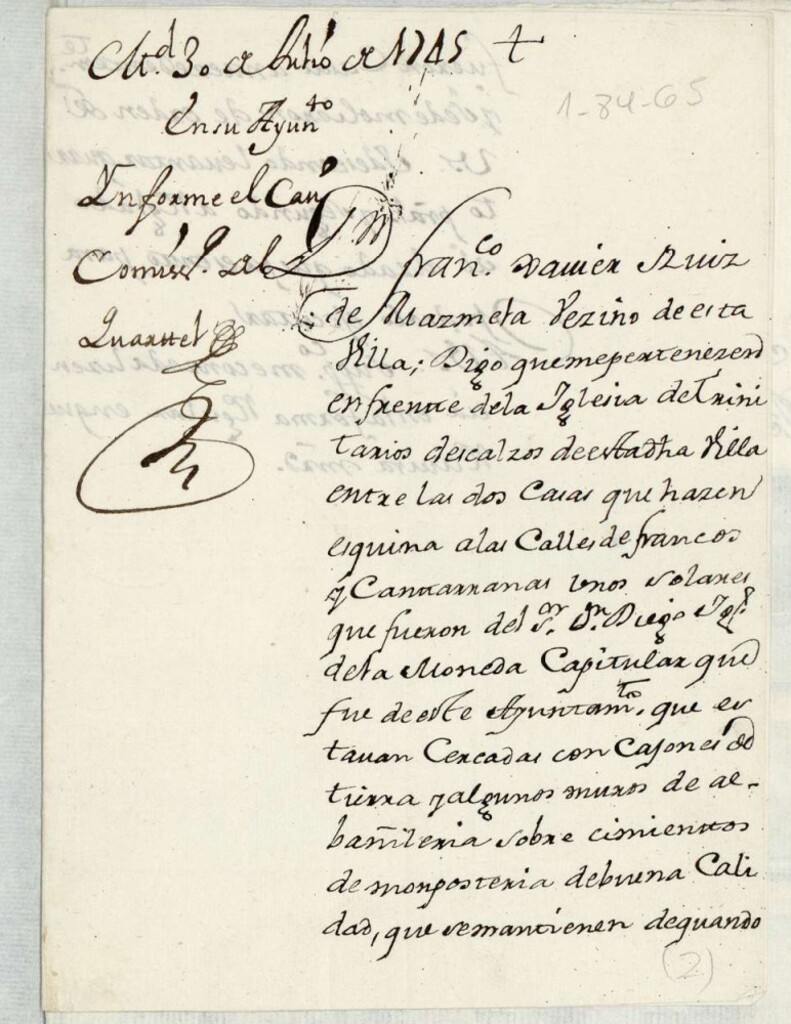 M.d 30 de Julio de 1745 +
1-84-65
En su Ayun.to
Ynforme el Cau.o
Comiss.o del
Quarttel
Fran.co Xauier Ruiz
de Mazmela Vezino de esta
Villa; Digo que me pertenezen
en frente de la Iglesia de Trini
tarios descalzos de esta dha Villa
entre las dos Casas que hazen
esquina a las Calles de francos
y Cantarranas unos solares
que fueron del S.or D.n Diego Igl.
de la Moneda Capitular que
fue de este Ayuntam.to, que es
tauan Cercadas con Cajones de
tierra y algunos muros de al-
bañileria sobre cimienttos
de monposteria de buena Cali
dad, que se mantienen de quando
(2)